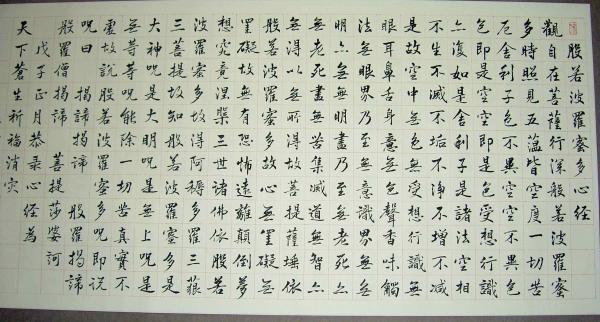 般若波羅蜜多心經
觀自在菩薩行深般若波羅蜜
多時照見五蘊皆空度一切苦
厄舍利子色不異空空不異色
色即是空空即是色受想行識
亦復如是舍利子是諸法空相
不生不滅不垢不淨不增不減
是故空中無色無受想行識無
眼耳鼻舌身意無色聲香味觸
法無眼界乃至無意識界無無
明亦無無明盡乃至無老死亦
無老死盡無苦集滅道無智亦
無得以無所得故菩提薩埵依
般若波羅蜜多故心無罣礙無
罣礙故無有恐怖遠離顛倒夢
想究竟涅槃三世諸佛依般若
波羅蜜多故得阿耨多羅三藐
三菩提故知般若波羅蜜多是
大神呪是大明呪是無上呪是
無等等呪能除一切苦真實不
虛故說般若波羅蜜多呪即說
呪曰 揭諦揭諦 般羅揭諦
般羅僧揭諦 菩提莎婆訶
戊子正月恭录心經為
天下蒼生祈福消災